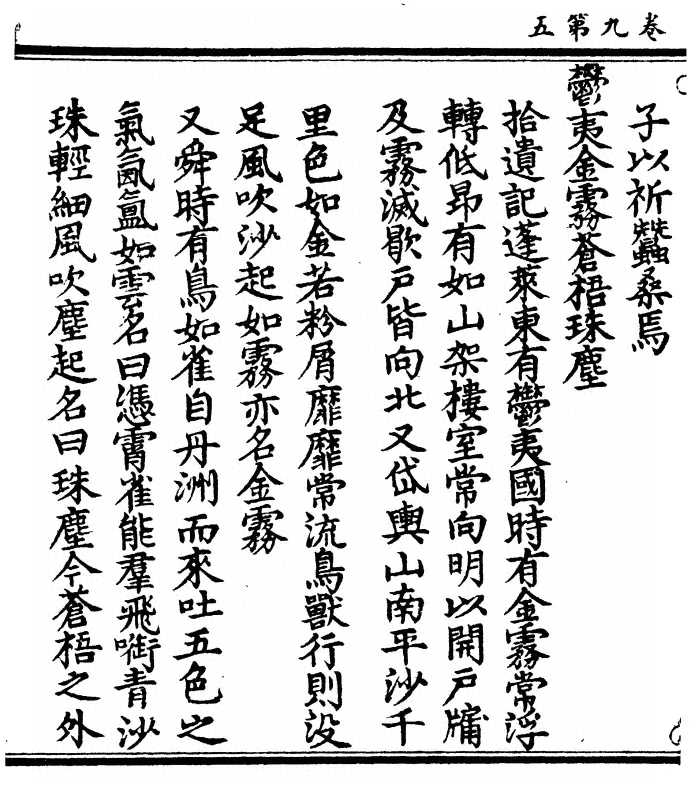 卷九第五
子以祈蠶桑焉
鬱夷金霧蒼梧珠塵
拾遺記蓬萊東有鬱夷國時有金霧常浮
轉低昂有如山架樓室常向明以開戶牖
及霧滅歇戶皆向北又岱輿山南平沙千
里色如金若粉屑靡靡常流鳥獸行則沒
足風吹沙起如霧亦名金霧
又舜時有鳥如雀自丹洲而來吐五色之
氣氤氳如雲名曰憑霄雀能羣飛啣青沙
珠輕細風吹塵起名曰珠塵今蒼梧之外